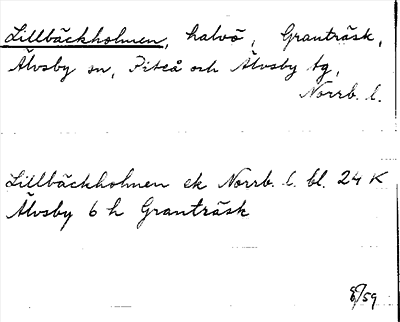 Lillbäckholmen, halvö, Granträsk,
Älvsby sn, Piteå och Älvsby tg,
Norrb. l.
Lillbäckholmen ek Norrb. l. bl. 24 K
Älvsby 6 h Granträsk
8/59